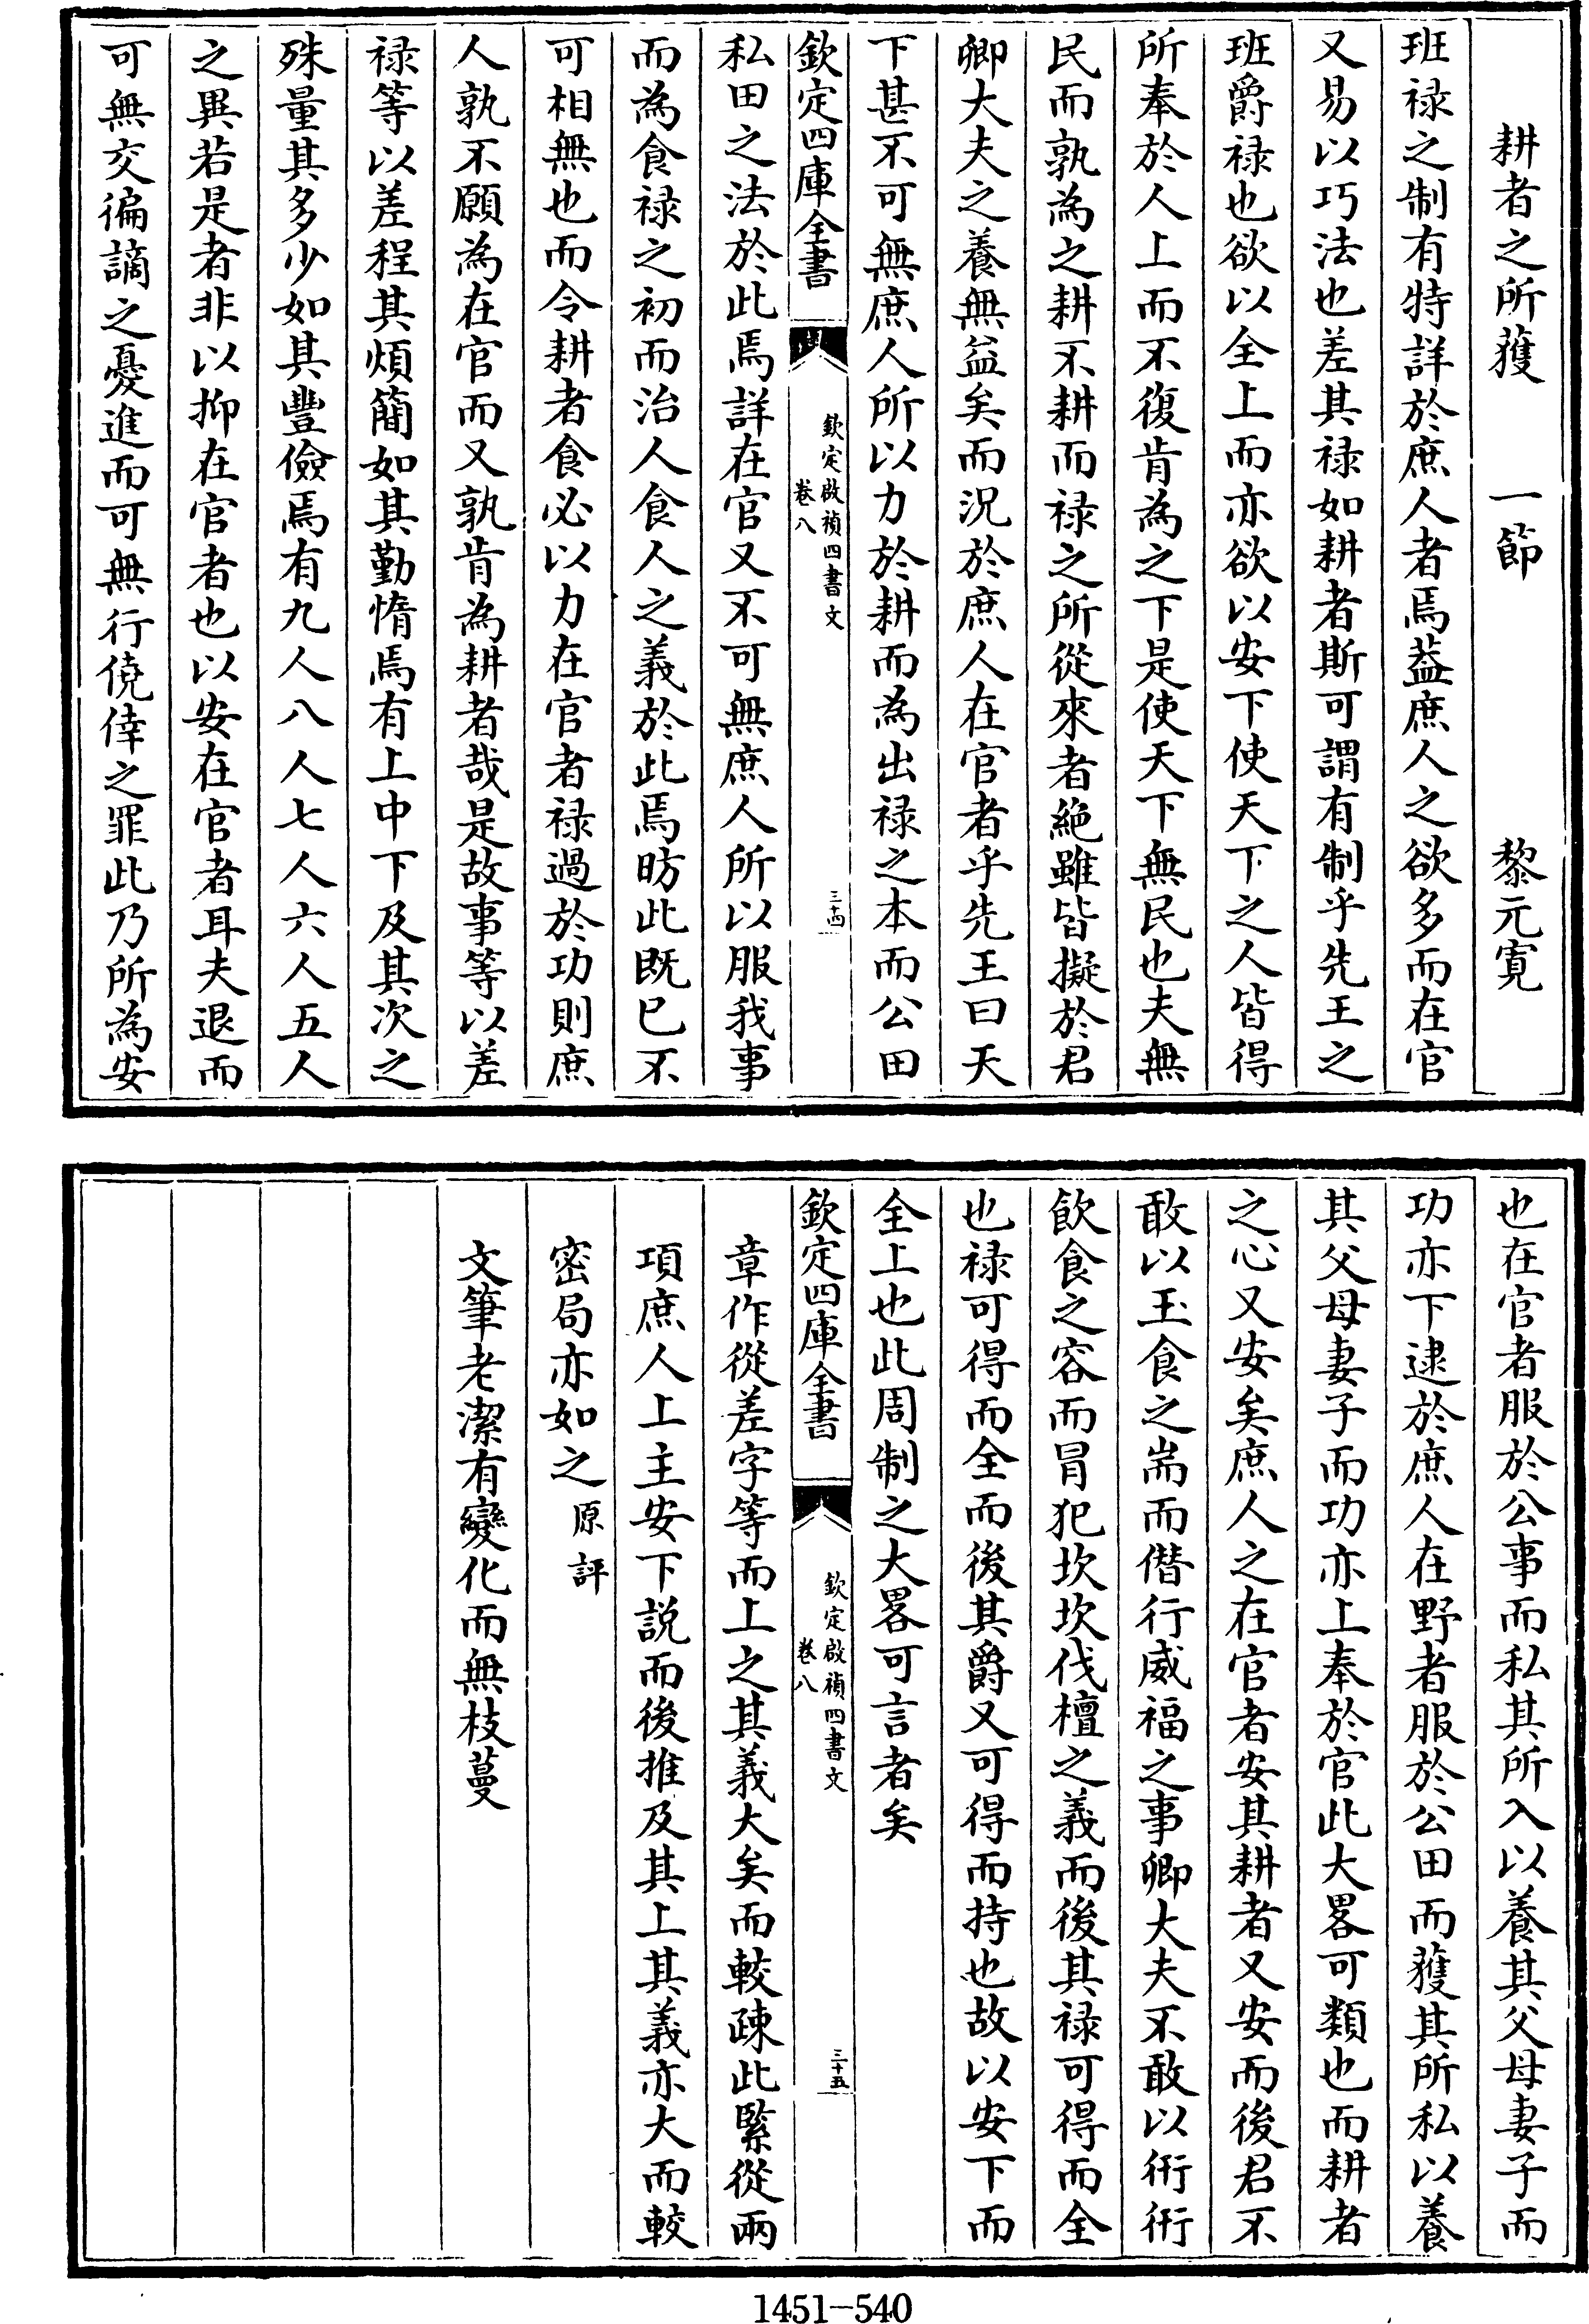 耕者之所獲　一節　黎元寛
班祿之制有特詳於庶人者焉葢庶人之欲多而在官
又易以巧法也差其祿如耕者斯可謂有制乎先王之
班爵祿也欲以全上而亦欲以安下使天下之人皆得
所奉於人上而不復肯為之下是使天下無民也夫無
民而孰為之耕不耕而祿之所從來者絶雖皆擬於君
卿大夫之養無益矣而況於庶人在官者乎先王曰天
下甚不可無庶人所以力於耕而為出祿之本而公田
欽定四庫全書
欽定啟禎四書文
卷八
三十四
私田之法於此焉詳在官又不可無庶人所以服我事
而為食祿之初而治人食人之義於此焉昉此既已不
可相無也而令耕者食必以力在官者祿過於功則庶
人孰不願為在官而又孰肯為耕者哉是故事等以差
祿等以差程其煩簡如其勤惰焉有上中下及其次之
殊量其多少如其豐儉焉有九人八人七人六人五人
之異若是者非以抑在官者也以安在官者耳夫退而
可無交徧讁之憂進而可無行僥倖之罪此乃所為安
也在官者服於公事而私其所入以養其父母妻子而
功亦下逮於庶人在野者服於公田而獲其所私以養
其父母妻子而功亦上奉於官此大畧可類也而耕者
之心又安矣庶人之在官者安其耕者又安而後君不
敢以玉食之耑而僭行威福之事卿大夫不敢以衎衎
飲食之容而冒犯坎坎伐檀之義而後其祿可得而全
也祿可得而全而後其爵又可得而持也故以安下而
全上也此周制之大畧可言者矣
欽定四庫全書
欽定啟禎四書文
卷八
三十五
章作從差字等而上之其義大矣而較疎此緊從兩
項庶人上主安下說而後推及其上其義亦大而較
密局亦如之原評
文筆老潔有變化而無枝蔓
1451-540